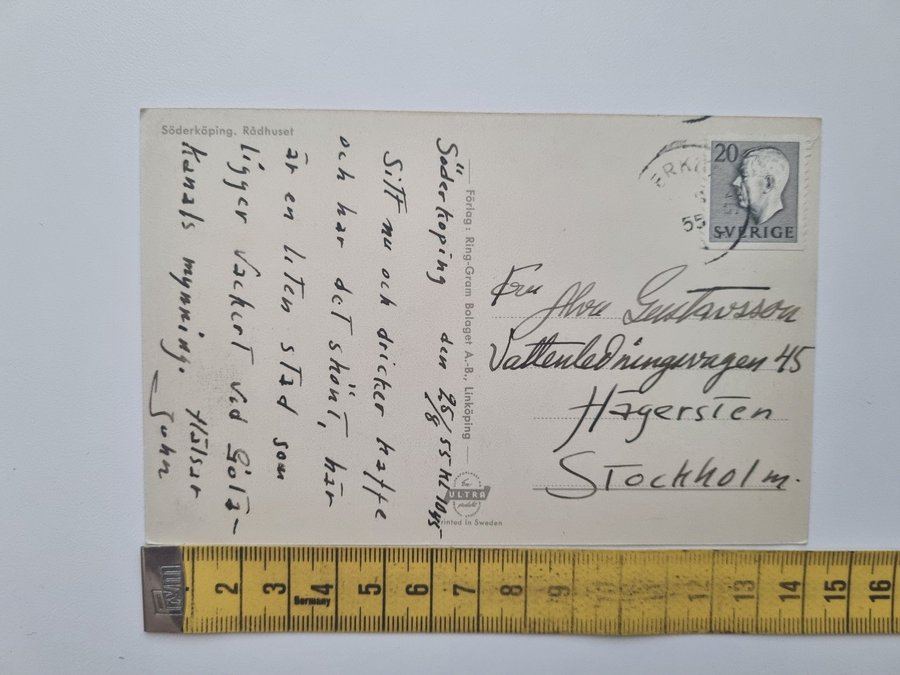 Söderköping. Rådhuset
Söderköping den 25/8 55 kl 1045
Sitt nu och dricker kaffe
och har det skönt, här
är en liten stad som
ligger vackert vid Göta-
Kanals mynning. Hälsar
John
Förlag: Ring-Gram Bolaget A.-B., Linköping
ULTRA
Printed in Sweden
20
SVERIGE
55
Fru Alva Gustavsson
Vattenledningsvägen 45
Hägersten
Stockholm.
1 2 3 4 5 6 7 8 9 10 11 12 13 14 15 16
Germany